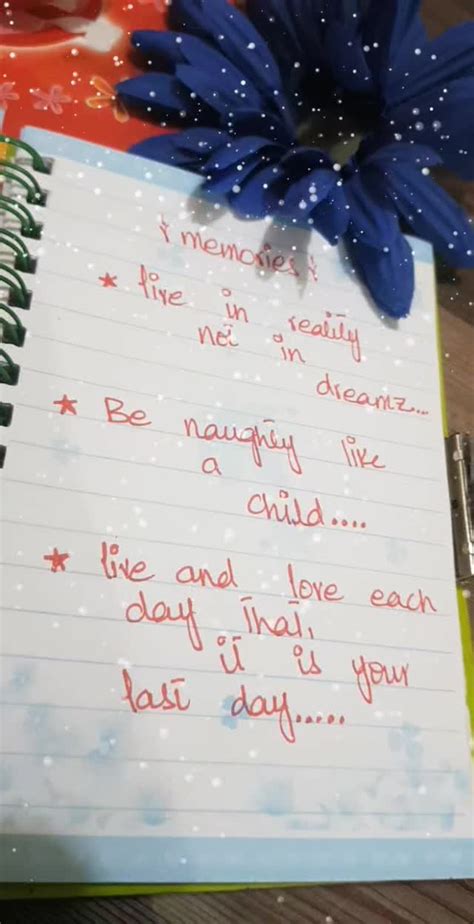 { memories }
* live in reality
not in
dreamz...
* Be naughty like
a
child....
* live and love each
day that,
it is your
last day.....